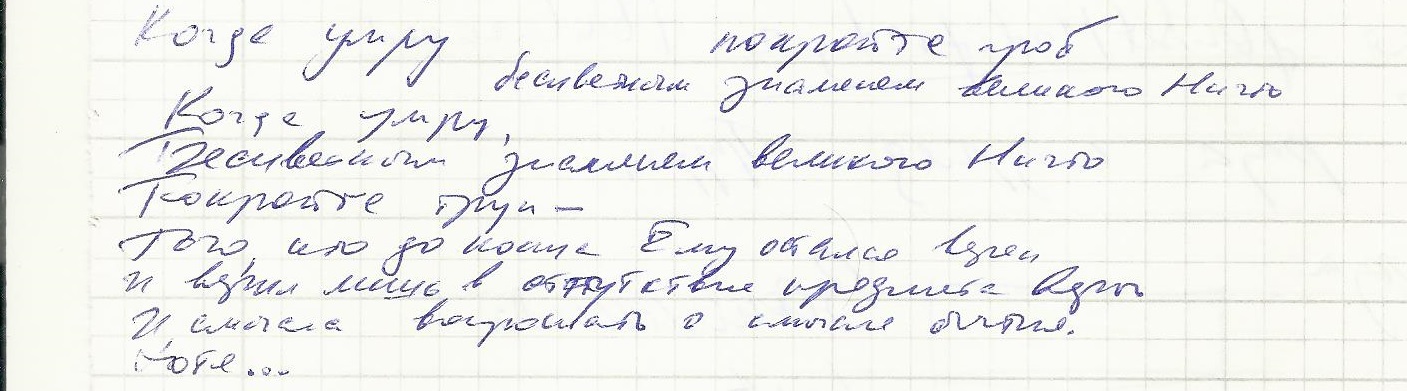 Когда умру покройте гроб
бесцветным знаменем великого Ничто
Когда умру,
Бесцветным знаменем великого Ничто
Покройте труп –
Того, кто до конца Ему остался верен
И верил лишь в отсутствие предмета веры
И смысла вопрошать о смысле бытия.
Хотя...